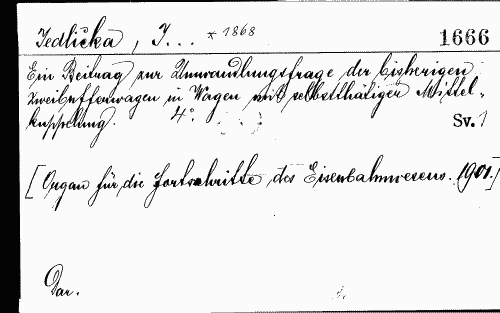 Jedlička, J... * 1868
1666
Ein Beitrag zur Umwandlungsfrage der bisherigen
Zweibufferwagen in Wagen mit selbstthätiger Mittel-
kuppelung. 4° Sv. 1
[Organ für die Fortschritte des Eisenbahnwesens. 1901.]
Dar.